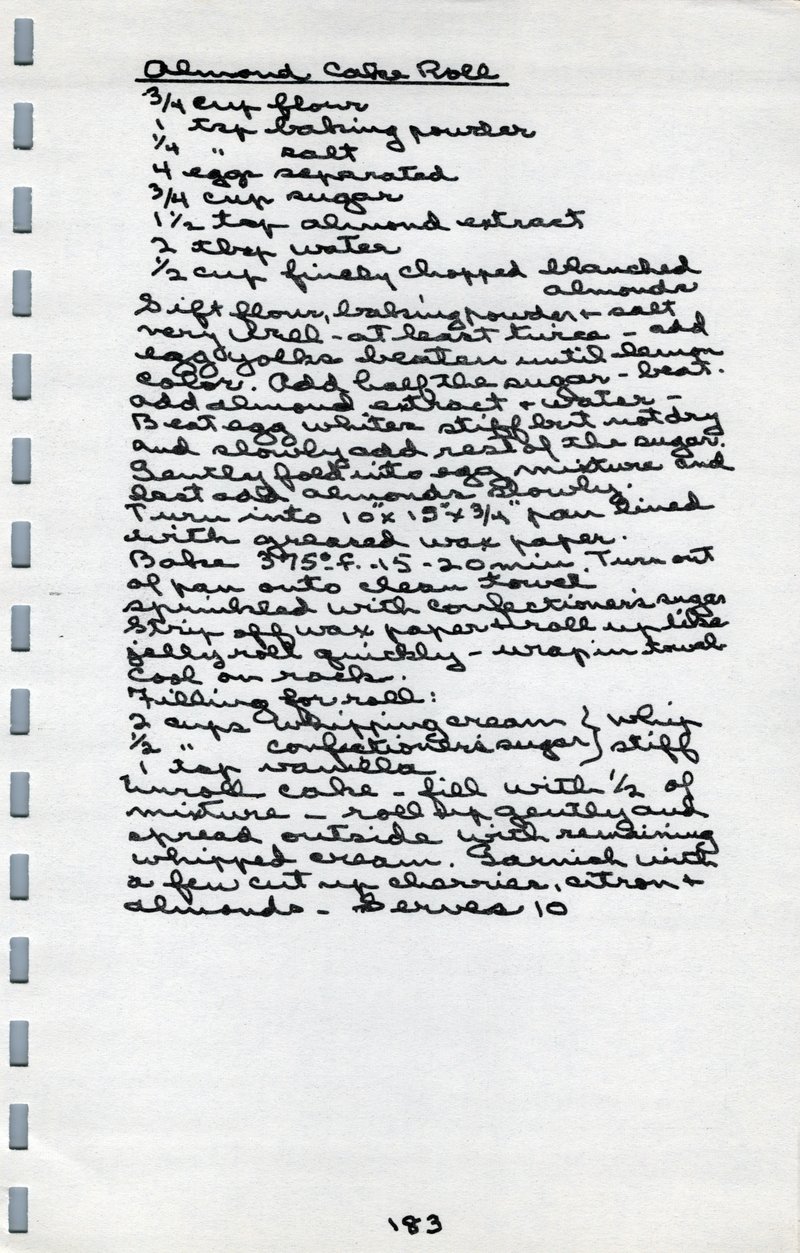 Almond Cake Roll
3/4 cup flour
1 tsp baking powder
1/4 " salt
4 eggs separated
3/4 cup sugar
1 1/2 tsp almond extract
2 tbsp water
1/2 cup finely chopped blanched
almonds
Sift flour, baking powder + salt
very well - at least twice - add
egg yolks beaten until lemon
color. Add half the sugar - beat.
add almond extract + water -
Beat egg whites stiff but not dry
and slowly add rest of the sugar.
Gently fold into egg mixture and
last add almonds slowly.
Turn into 10" x 15" x 3/4" pan lined
with greased wax paper.
Bake 375° f. - 15 - 20 min. Turn out
of pan onto clean towel
sprinkled with confectioner's sugar
Strip off wax paper + roll up like
jelly roll quickly - wrap in towel
Cool on rack.
Filling for roll:
2 cups whipping cream } whip
1/2 " confectioner's sugar } stiff
1 tsp vanilla
Unroll cake - fill with 1/2 of
mixture - roll up gently and
spread outside with remaining
whipped cream. Garnish with
a few cut up cherries, citron +
almonds - Serves 10
183